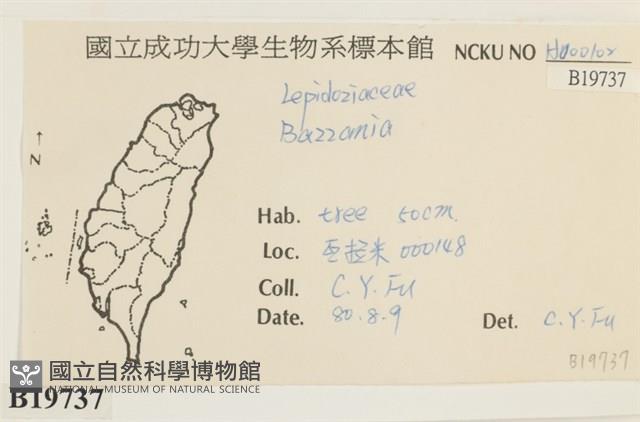 國立成功大學生物系標本館 NCKU NO H000102
B19737
Lepidoziaceae
Bazzania
N
Hab. tree 50cm.
Loc. 000148
Coll. C. Y. Fu
Date. 80.8.9 Det. C. Y. Fu
B19737
國立自然科學博物館
NATIONAL MUSEUM OF NATURAL SCIENCE
B19737